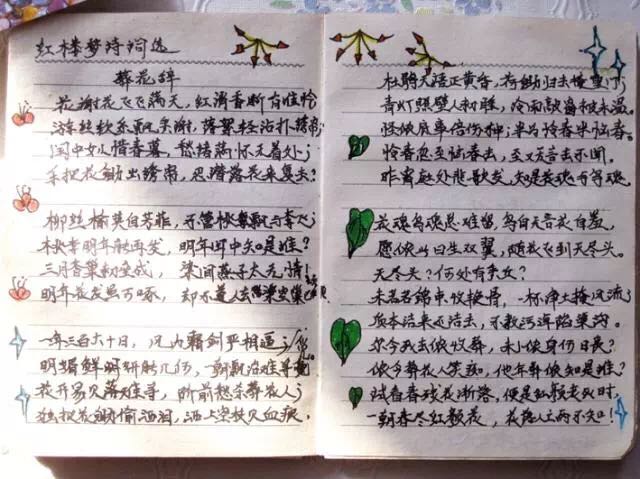 红楼梦诗词选
葬花辞
花谢花飞飞满天,红消香断有谁怜
游丝软系飘春榭,落絮轻沾扑绣帘;
闺中女儿惜春暮,愁绪满怀无着处;
手把花锄出绣帘,忍踏落花来复去?
柳丝榆荚自芳菲,不管桃飘与李飞;
桃李明年能再发,明年闺中知是谁?
三月香巢初垒成,梁间燕子太无情
明年花发虽可啄,却不道人去梁空巢已
一年三百六十日,风刀霜剑严相逼;
明媚鲜妍能几何,一朝飘泊难寻觅
花开易见落难寻,阶前愁杀葬花人;
独把花锄偷洒泪,洒上空枝见血痕。
杜鹃无语正黄昏,荷锄归去掩重门;
青灯照壁人初睡,冷雨敲窗被未温。
怪侬底事倍伤神;半为怜春半恼春。
怜春忽至恼春去,至又无言去不闻。
昨宵庭外悲歌发,知是花魂与鸟魂。
花魂鸟魂总难留,鸟自无言花自羞,
愿侬此日生双翼,随花飞到天尽头。
天尽头?何处有香丘?
未若锦囊收艳骨,一抔净土掩风流;
质本洁来还洁去,不教污淖陷渠沟。
尔今死去侬收葬,未卜侬身何日丧?
侬今葬花人笑痴,他年葬侬知是谁?
试看春残花渐落,便是红颜老死时,
一朝春尽红颜老,花落人亡两不知!